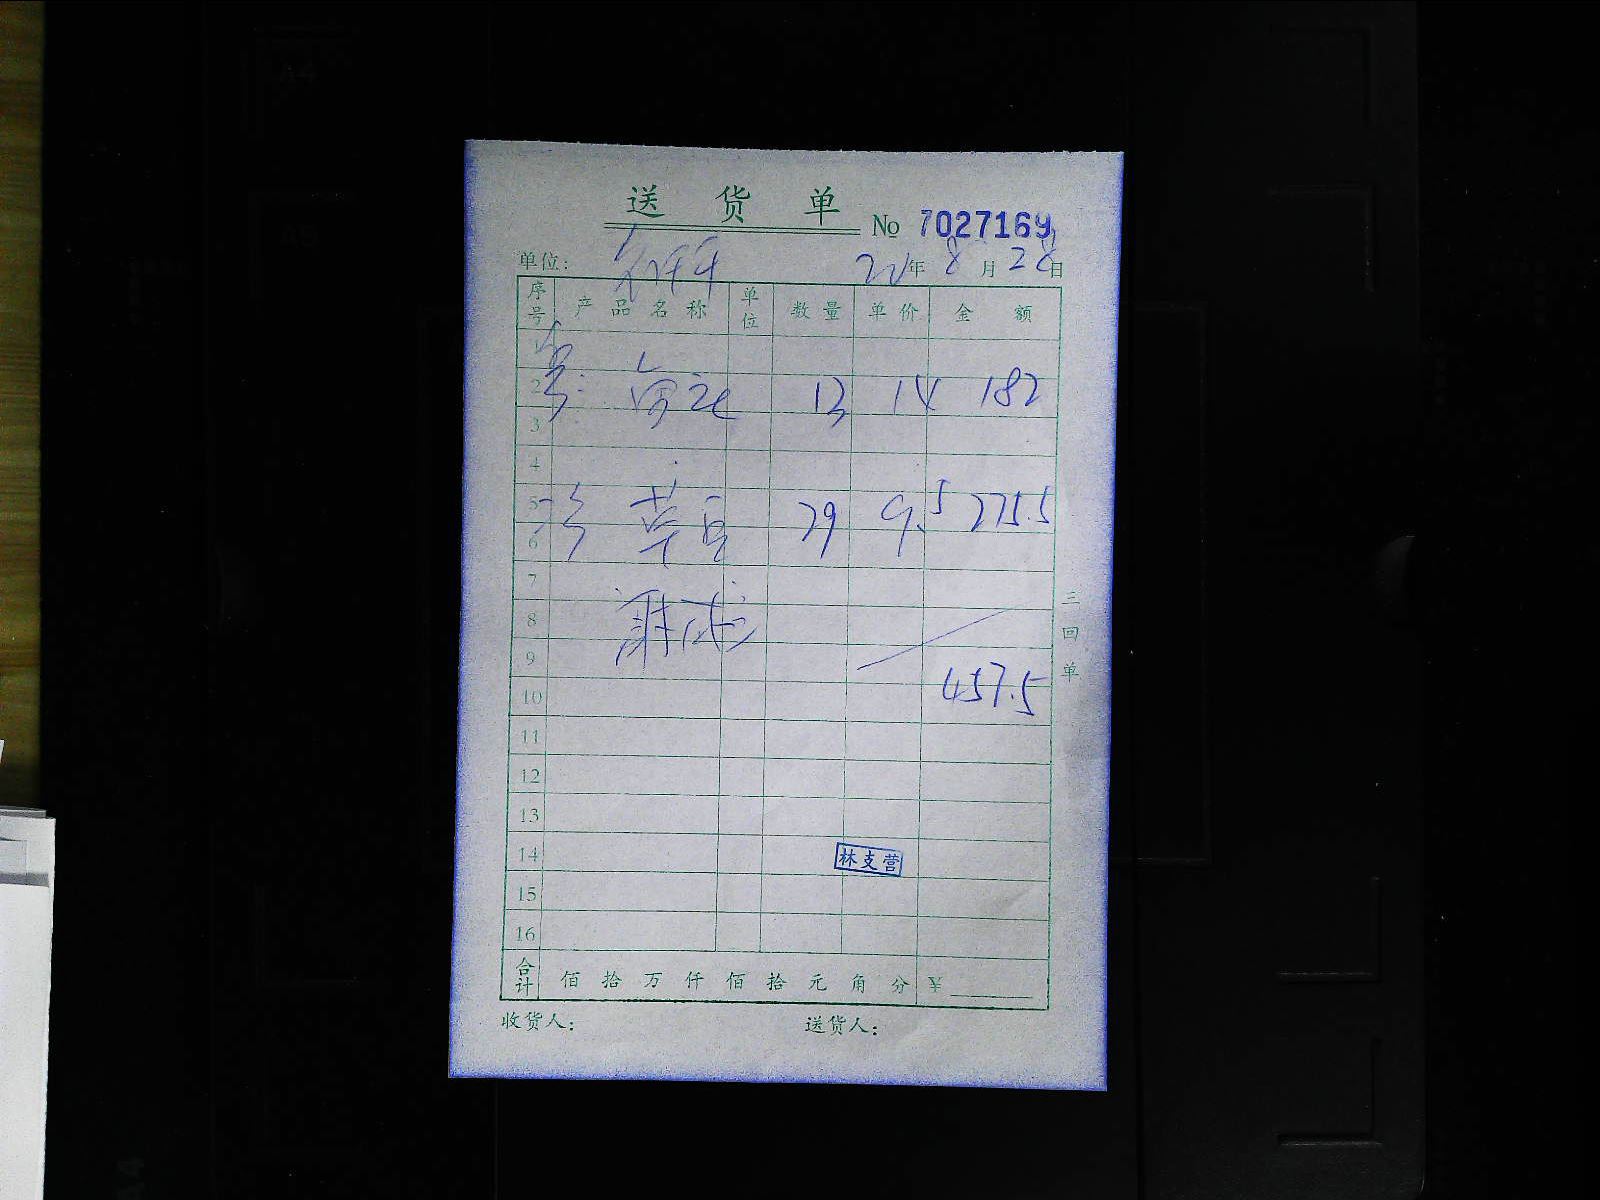 送货单
No 7027169
单位: 22年8月28日
序号 产品名称 单位 数量 单价 金额
1
2 13 14 182
3
4
5 草豆 29 9.5 275.5
6
7
8
9
457.5
10
11
12
13
14
林支营
15
16
合计 佰拾万仟佰拾元角分 ¥
收货人: 送货人:
三回单